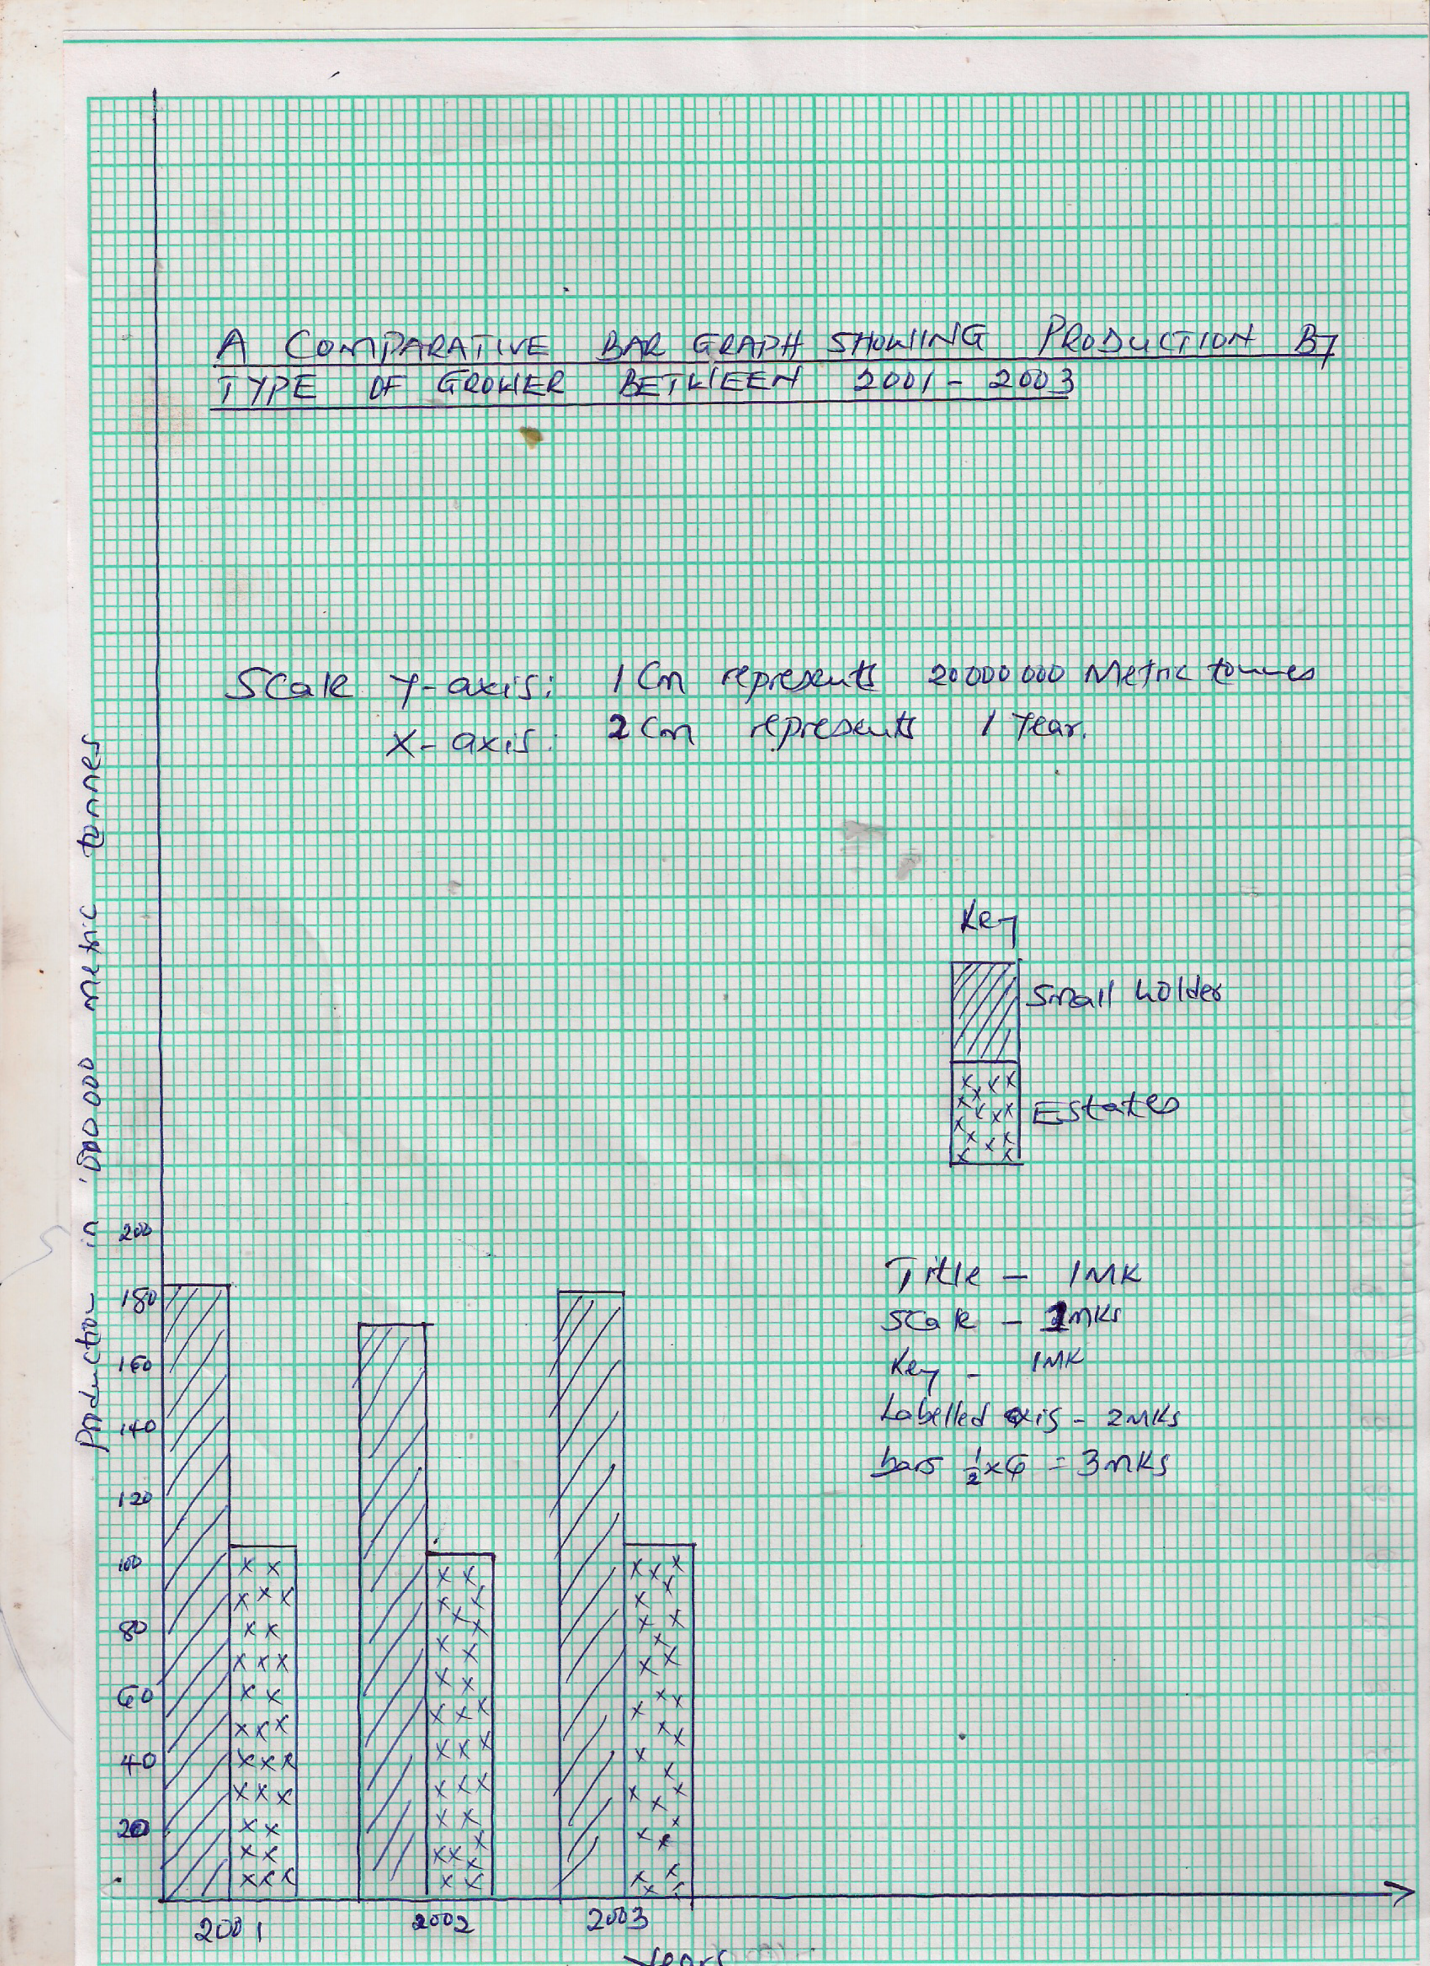 A COMPARATIVE BAR GRAPH SHOWING PRODUCTION BY
TYPE OF GROWER BETWEEN 2001 - 2003
Scale Y-axis: 1 Cm represents 20000 000 Metric tonnes
X-axis: 2 Cm represents 1 Year.
Key
Small holder
Estates
Title - 1MK
Scale - 2MKs
Key - 1MK
Labelled axis - 2MKs
bars ½x6 = 3MKs
Production in '000 000 metric tonnes
200
180
160
140
120
100
80
60
40
20
2001 2002 2003
Years